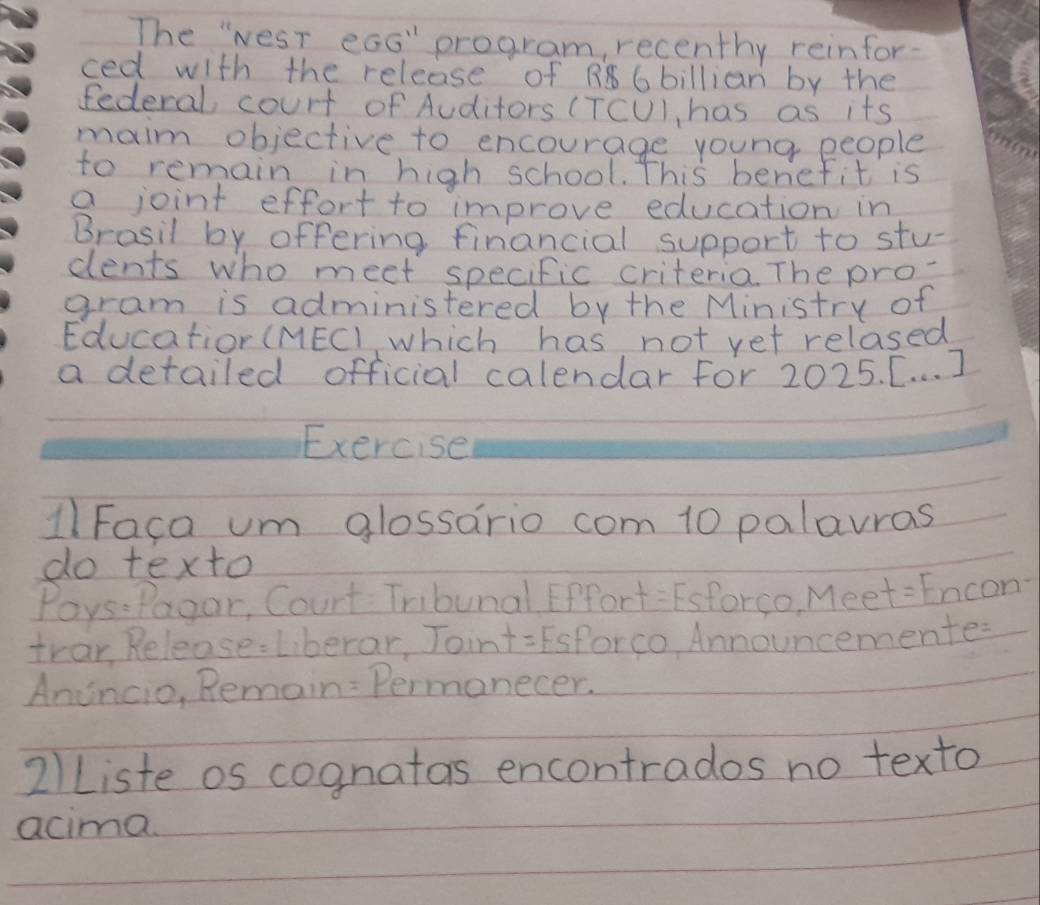 The "NEST EGG" program, recenthy reinfor-
ced with the release of R$ 6 billian by the
federal court of Auditors (TCU), has as its
maim objective to encourage young people
to remain in high school. This benefit is
a joint effort to improve education in
Brasil by offering financial support to stu-
dents who meet specific criteria. The pro-
gram is administered by the Ministry of
Educatior (MEC), which has not yet relased
a detailed official calendar for 2025. [...]
Exercise
1) Faça um glossário com 10 palavras
do texto
Pays = Pagar, Court = Tribunal, Effort = Esforço, Meet = Encon-
trar, Release = Liberar, Joint = Esforço, Announcemente =
Anúncio, Remain = Permanecer.
2) Liste os cognatas encontrados no texto
acima.